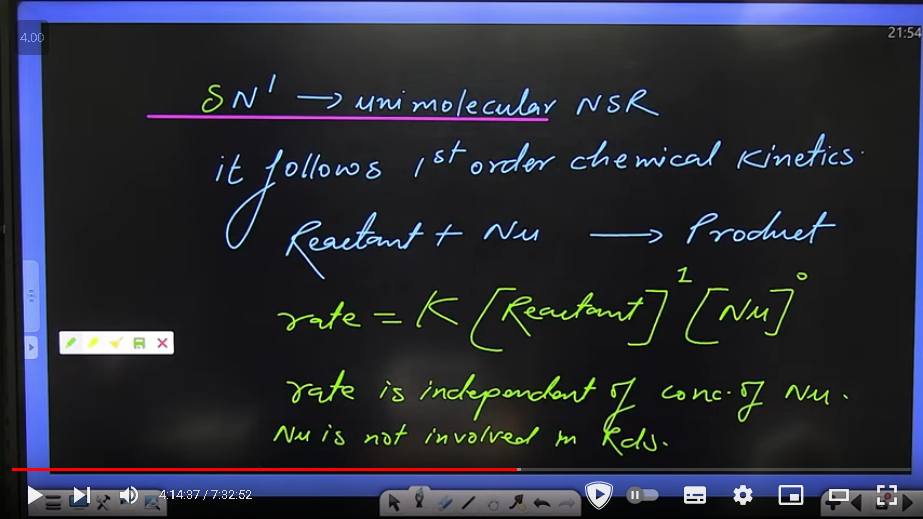 4.00
21:54
SN¹ → unimolecular NSR
it follows 1st order chemical kinetics.
Reactant + Nu → Product
rate = K [Reactant]¹ [Nu]⁰
rate is independent of conc. of Nu.
Nu is not involved in Rds.
4:14:37 / 7:32:52